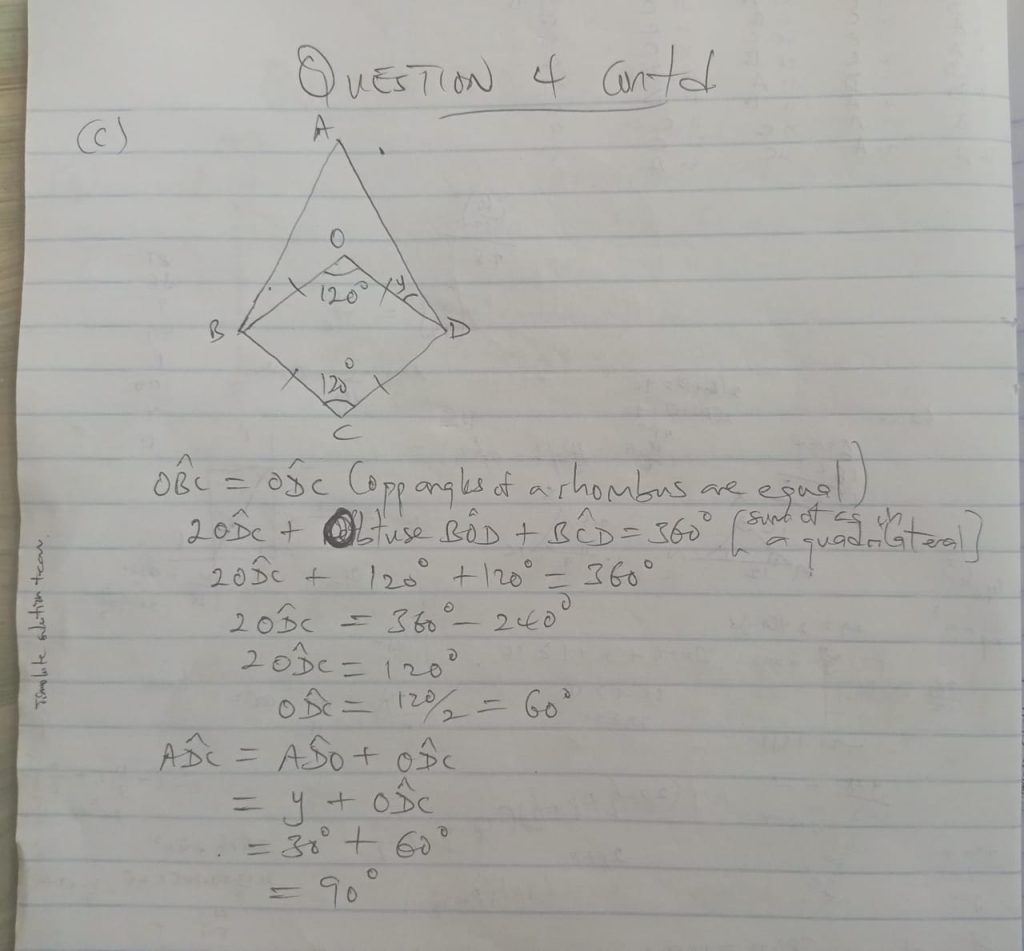 QUESTION 4 Contd
(c)
A
O
120° y
B D
120°
C
OB̂C = OD̂C (opp angles of a rhombus are equal)
2OD̂C + Obtuse BÔD + BĈD = 360° [sum of ∠s in a quadrilateral]
2OD̂C + 120° + 120° = 360°
2OD̂C = 360° - 240°
2OD̂C = 120°
OD̂C = 120/2 = 60°
AD̂C = AD̂O + OD̂C
= y + OD̂C
= 30° + 60°
= 90°
solution team